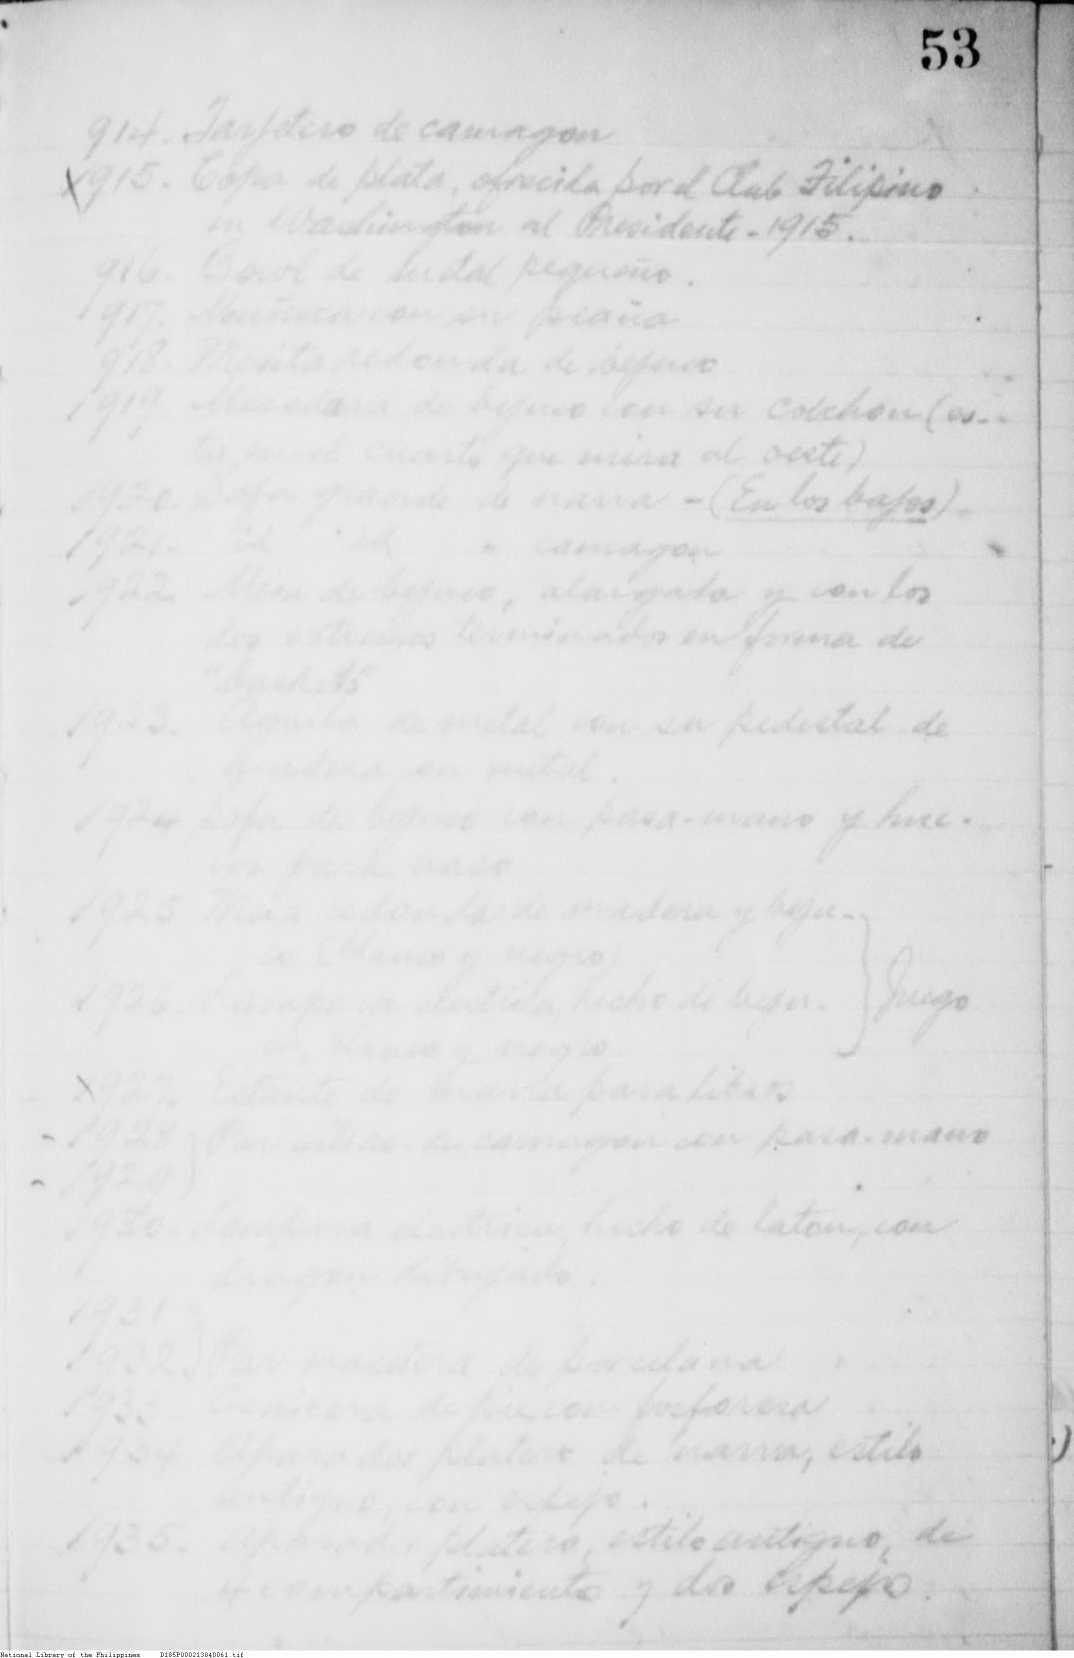 53
914. Tarjetero de camagon
1915. Copa de plata, ofrecida por el Club Filipino
en Washington al Presidente - 1915.
916. Bowl de metal pequeño.
1917. Muñeca con su peaña
918. Mesita redonda de bejuco
1919. Mecedora de bejuco con su colchon (es-
cuarto que mira al oeste)
1920. Sofa grande de narra - (En los bajos).
1921. id id " camagon
1922. Mesa de bejuco, alargada y con los
dos extremos terminados en forma de
"baskets"
1923. de metal con su pedestal de
en metal.
1924 Sofa de bejuco con pasa-mano y hue-
cos para
1925 Mesa redonda de madera y beju-
co (blanco y negro)
1926. Lampara electrica, hecho de beju-
co, blanco y negro
Juego
1927. Estante de narra para libros
1928 Par de camagon con pasa-mano
1929
1930. Lampara electrica, hecho de laton, con
dragon dibujado.
1931
1932 Par macetera de porcelana
1933 Cenicera de pie con fosforera
1934 Aparador platero de narra, estilo
antiguo, con espejo.
1935. Aparador platero, estilo antiguo, de
4 compartimiento y dos espejo.
National Library of the Philippines D185P000213040061.tif